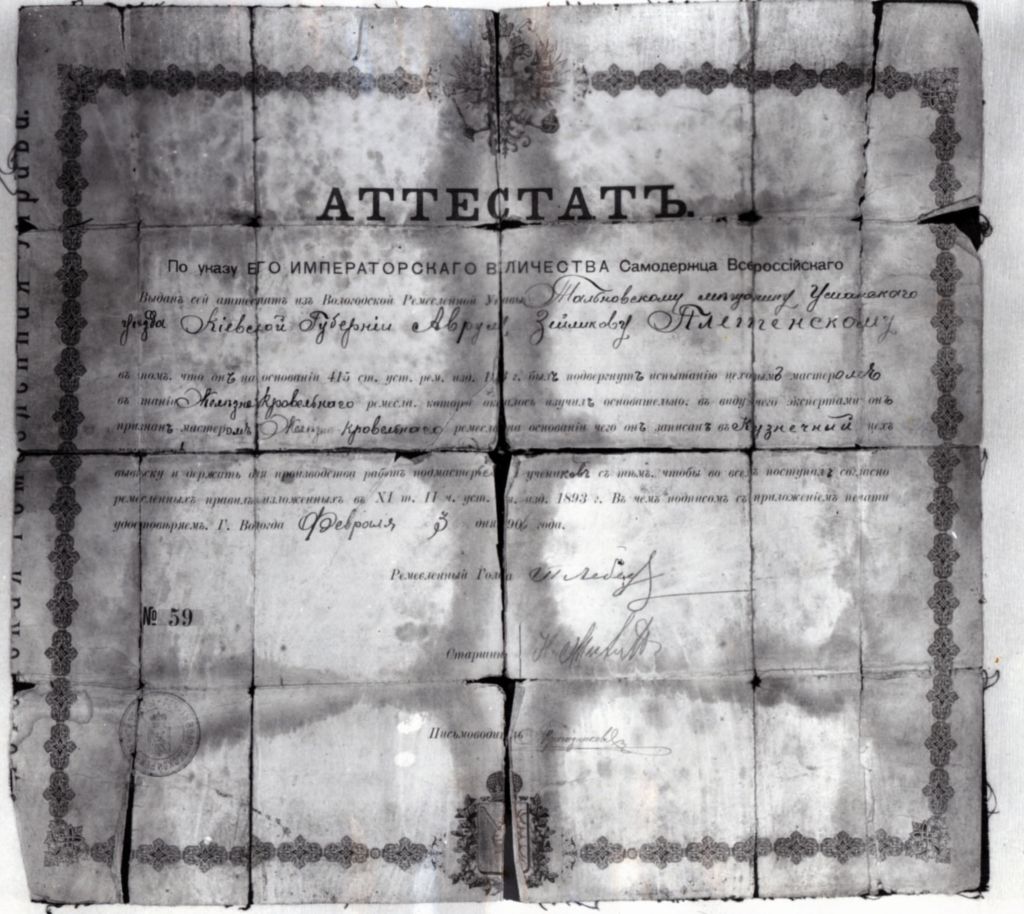 АТТЕСТАТЪ.
По указу ЕГО ИМПЕРАТОРСКАГО ВЕЛИЧЕСТВА Самодержца Всероссійскаго
Выданъ сей аттестатъ изъ Вологодской Ремесленной Управы Тальновскому мѣщанину Уманскаго
уѣзда Кіевской Губерніи Авруму Зейликову Плетенскому
въ томъ, что онъ на основаніи 415 ст. уст. рем. изд. г. былъ подвергнутъ испытанію цеховымъ мастеромъ
въ знаніи Желѣзно-Кровельнаго ремесла, которо оказалось изучилъ основательно; въ виду чего экспертами онъ
признанъ мастеромъ Желѣзно-кровельнаго ремесла на основаніи чего онъ записанъ въ Кузнечный цехъ
вывѣску и держать для производства работъ подмастерьевъ учениковъ съ тѣмъ, чтобы во всемъ поступалъ согласно
ремесленныхъ правилъ изложенныхъ въ XI т. II ч. уст. изд. 1893 г. Въ чемъ подписомъ съ приложеніемъ печати
удостовѣряемъ. Г. Вологда Февраля 3 дня 906 года.
Ремесленный Голова
№ 59
Старшина
Письмоводитель